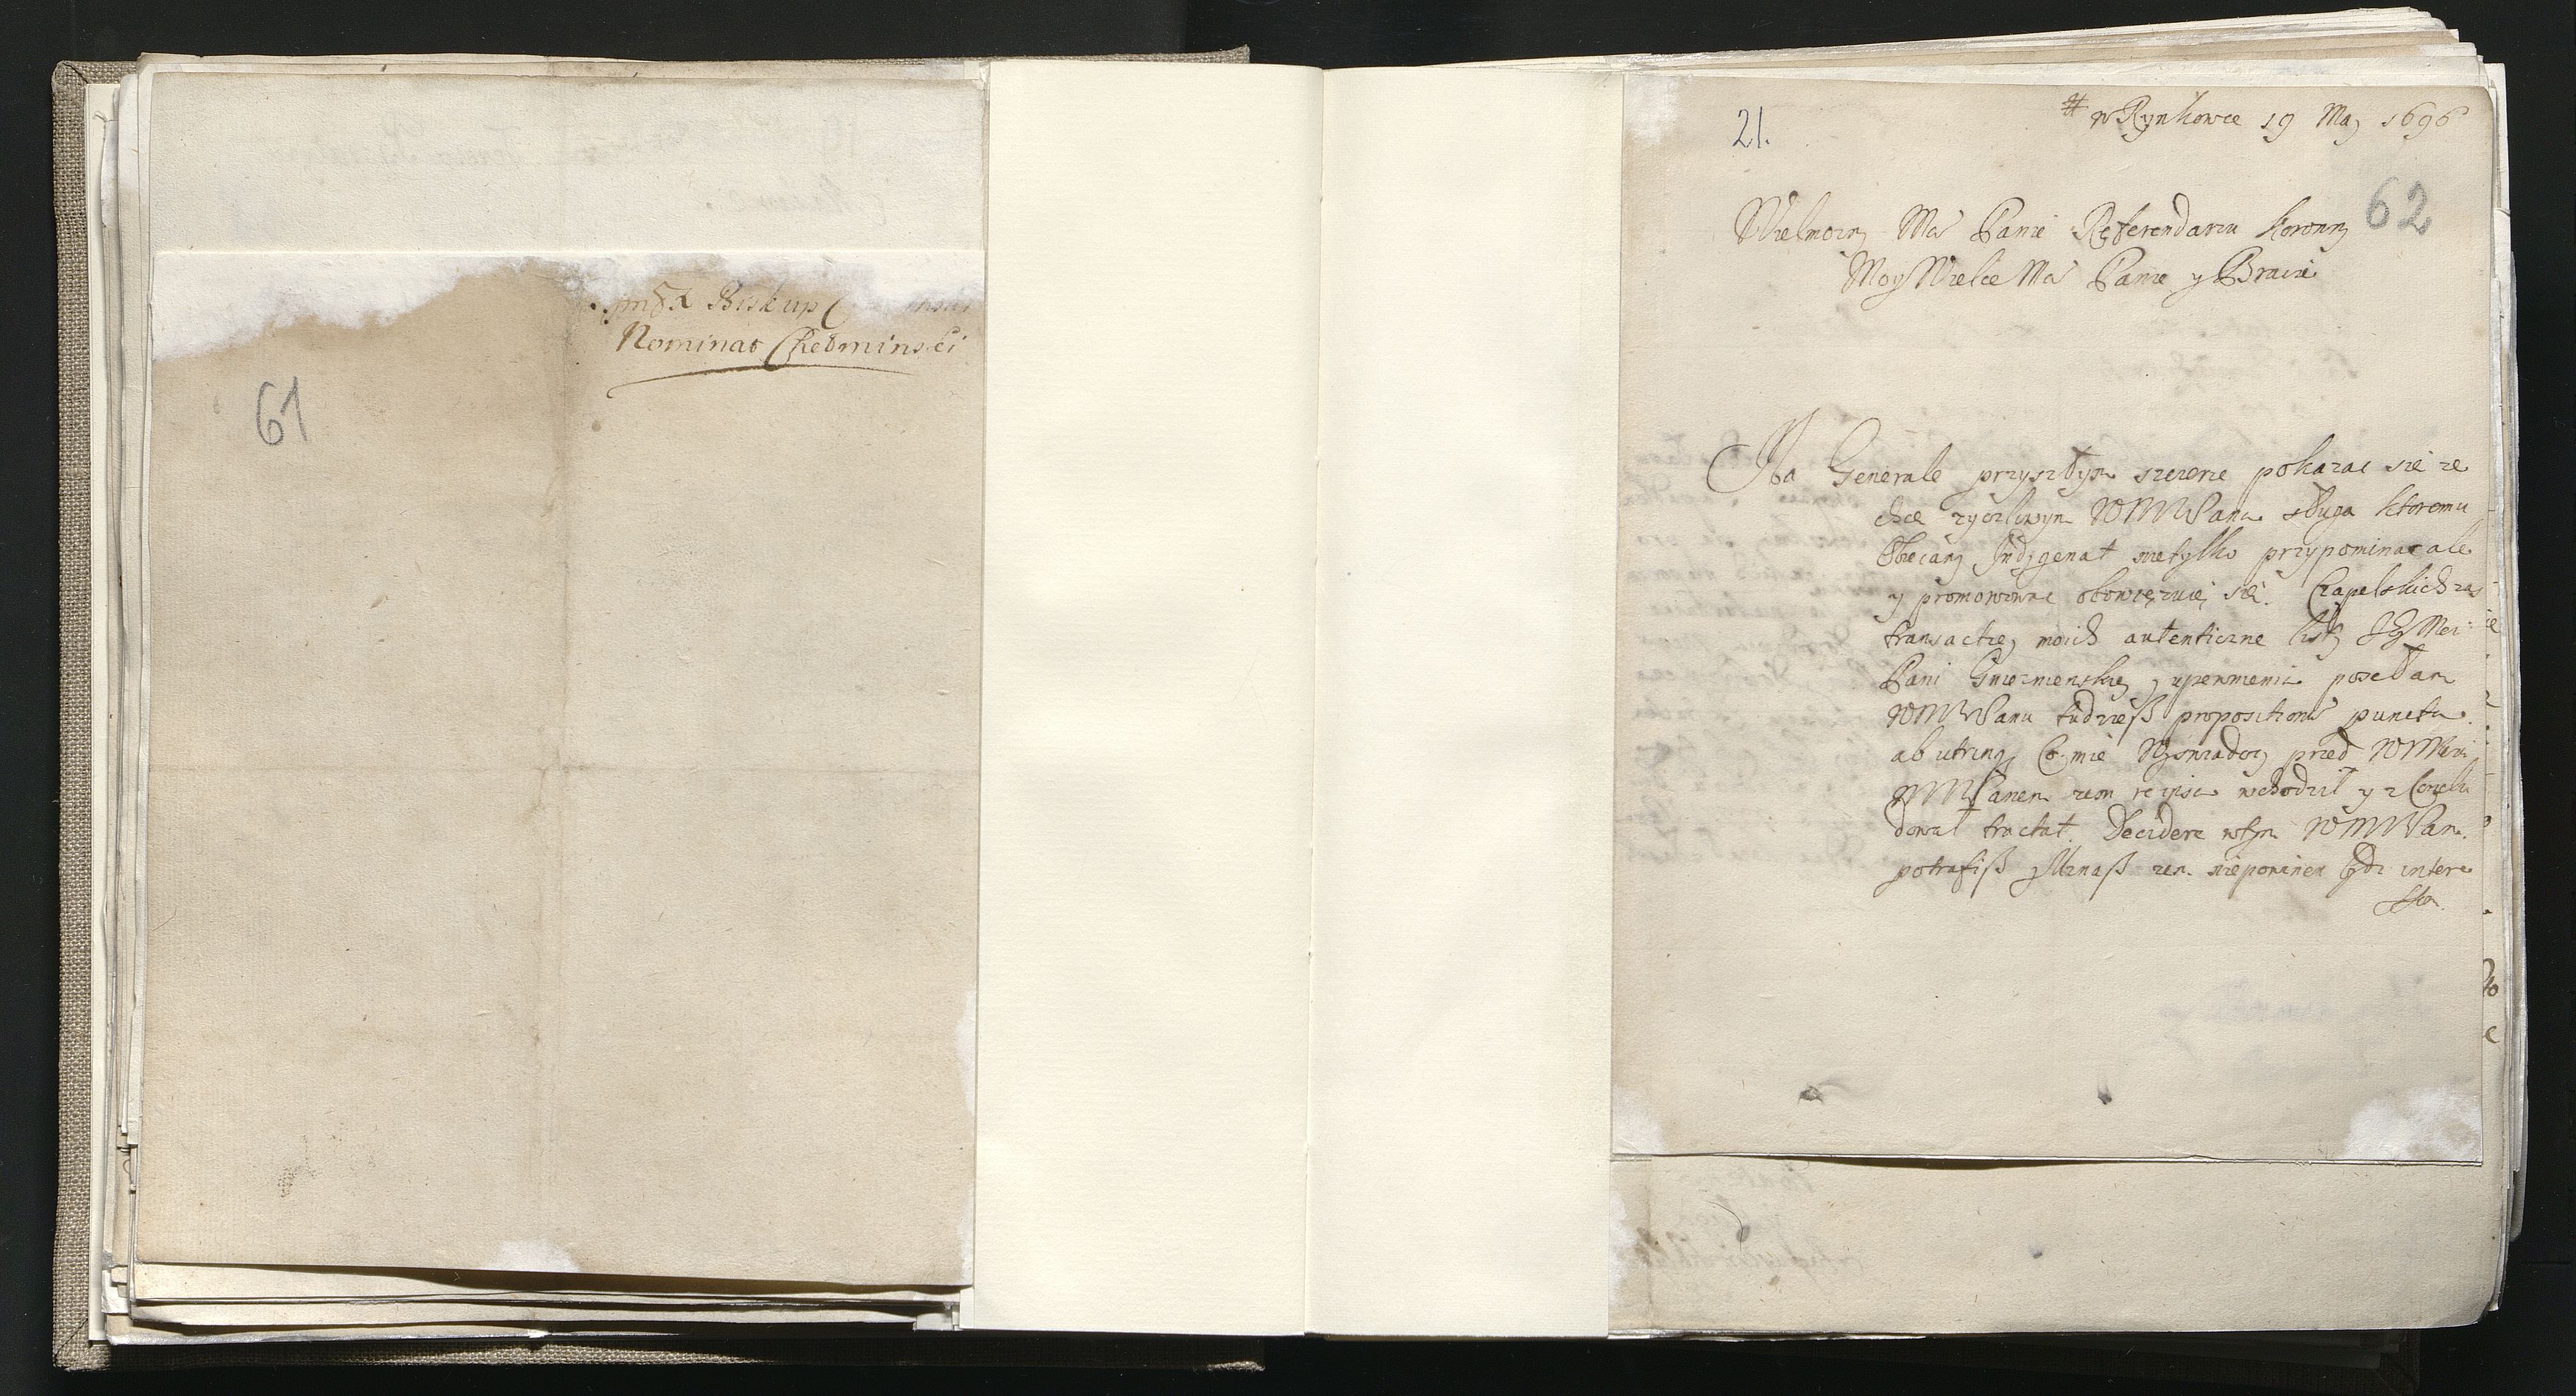 Biskup
Nominat Chełminski
61
21.
w Rynkowce 19 Maj 1696
62
Wielmozny Mci Panie Referendarzu Koronny
Moy Wielce Mci Panie y Bracie
Na Generale przyszłym szczerze pokazac się ze
chcę zyczliwym WMMPana sługa ktoremu
Obiecany Indygenat nietylko przypominac ale
y promowowac obowięzuię się. Czapelskich zas
transactiey moich autenticzne listy JEy Mci
Pani Gnieznienskiey y upewnienie posełam
WMMPanu tudziesz propositionis puncta
ab utrinq mie przed
WMMPanem zem re ipsa wchodził y z Conclu
dował tractat. Decidere wtym WMMPan
potrafisz y Uznasz zem nie powinien bydz intere
ssem